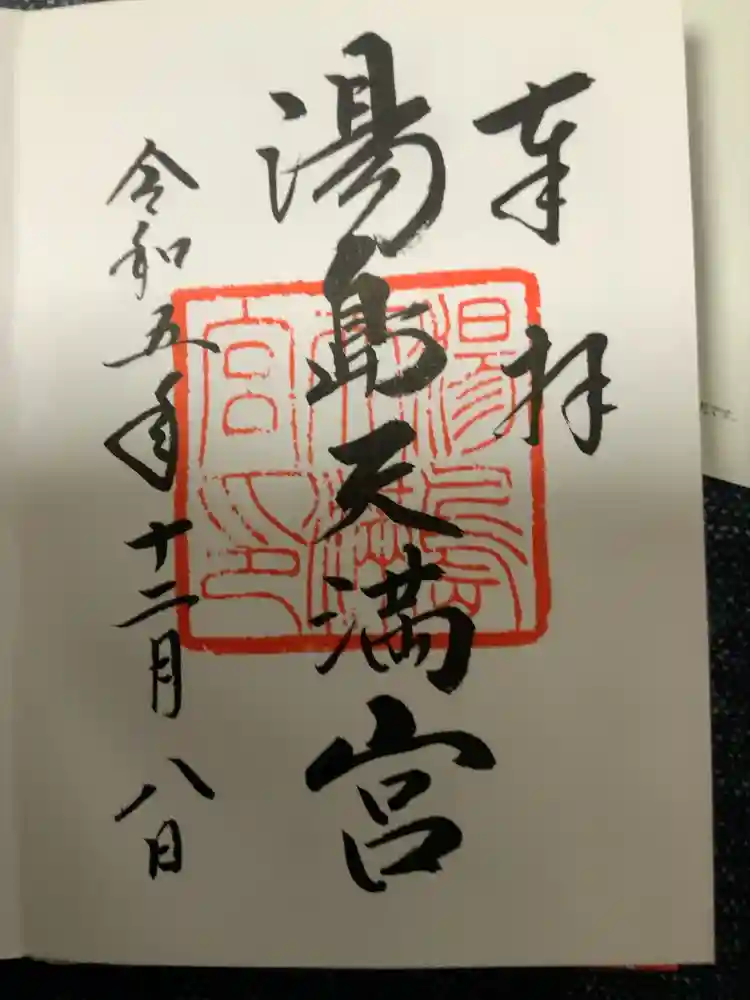 奉拝
湯島天満宮
令和五年十二月八日
湯島
天満
宮印